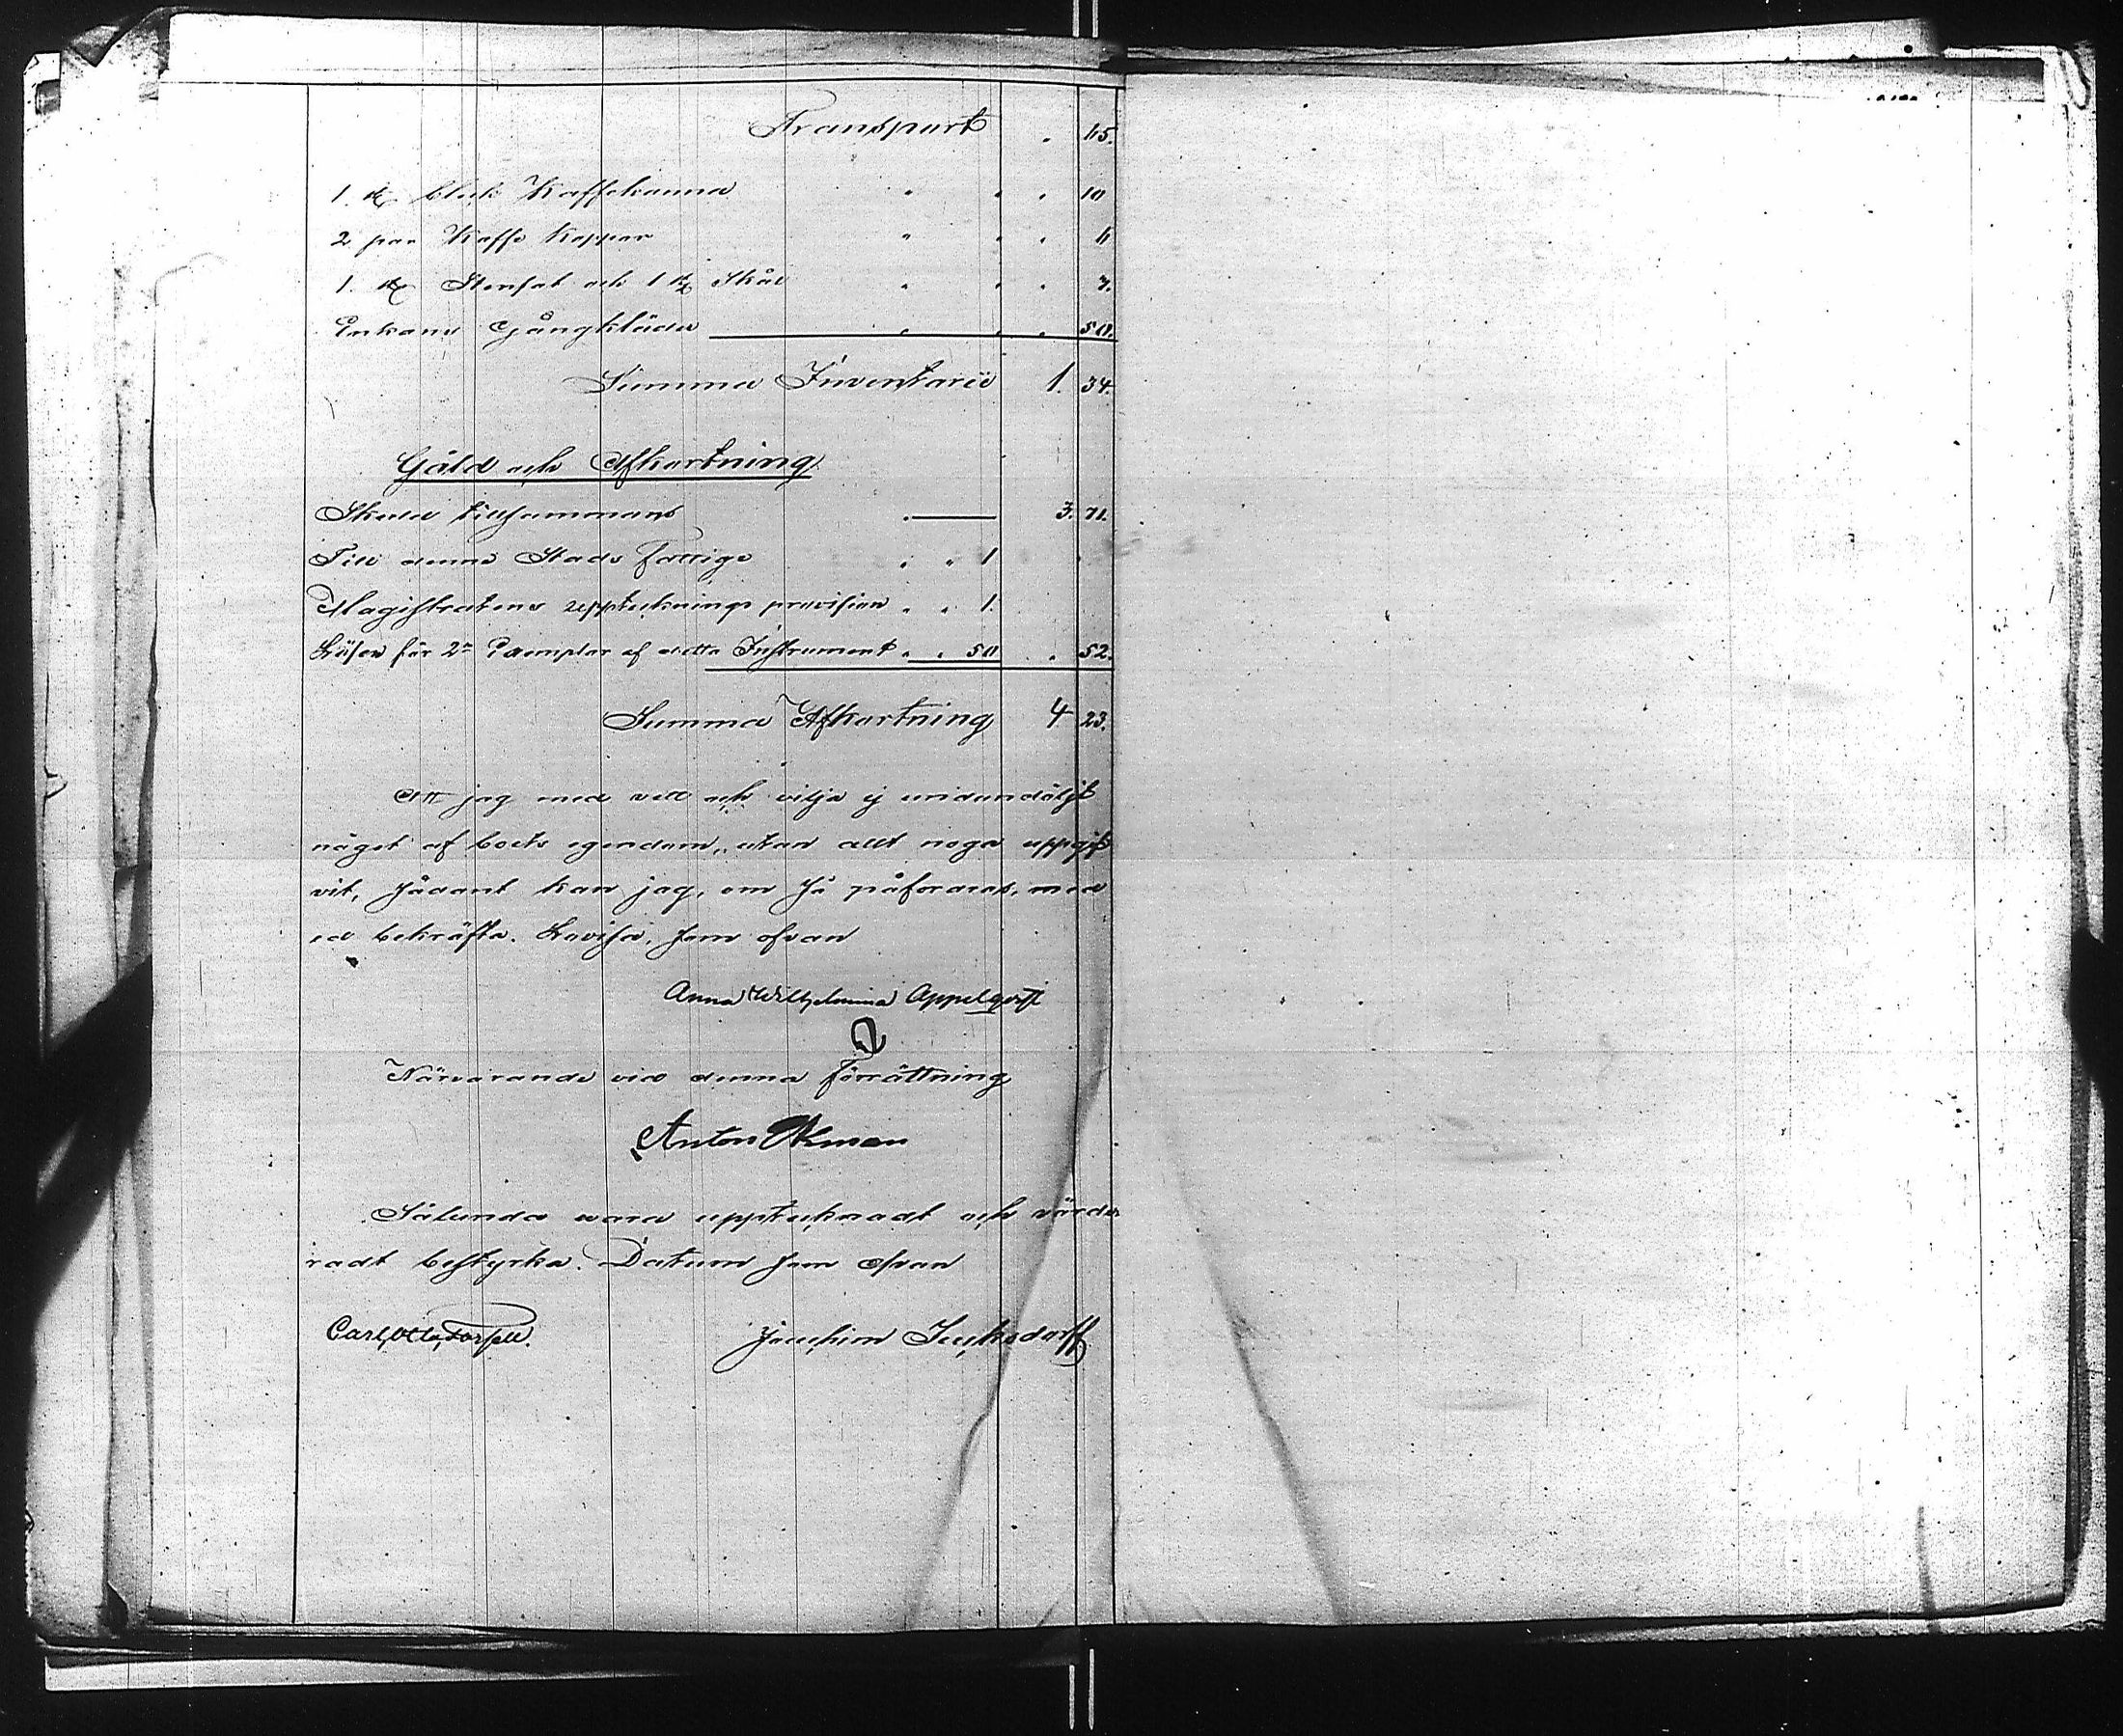 Transport " 65.
1. st. bleck Kaffekanna " " " 10
2 par Kaffe koppar " " " 2
1. st. Stenfat och 1 st. Skål " " " 7.
Enkans Gångkläder " " " 50.
Summa Inventarii 1. 34.
Gäld och Afkortning.
Skuld tillsammans " 3. 71.
Till denna Stads fattige " " 1
Magistratens uppteknings provision " " 1.
Lösen för 2ne Exemplar af detta Instrument " " 50 " 52.
Summa Afkortning 4 23.
Att jag med vett och vilja ej undandöljt
något af boets egendom, utan allt noga uppgif-
vit, sådant kan jag, om så påfordras, med
ed bekräfta. Lovisa, som ofvan
Anna Wilhelmina Appelqvist
Närvarande vid denna förrättning
Anton Öhman
Sålunda vara upptecknadt och värde-
radt bestyrka. Datum som ofvan
Carl Otto Forsell. Joachim Sucksdorff